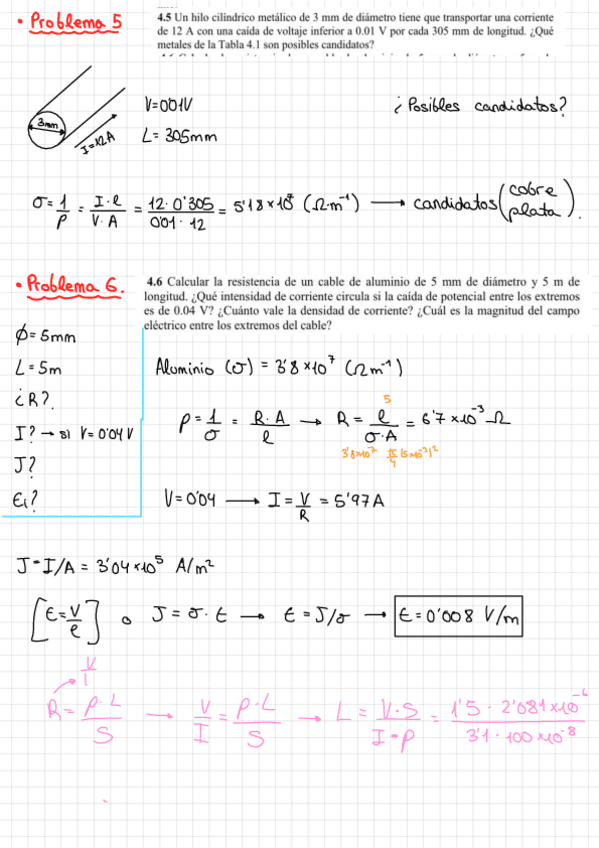 • Problema 5
4.5 Un hilo cilíndrico metálico de 3 mm de diámetro tiene que transportar una corriente
de 12 A con una caída de voltaje inferior a 0.01 V por cada 305 mm de longitud. ¿Qué
metales de la Tabla 4.1 son posibles candidatos?
3mm
I=12A
V=0'01V
¿Posibles candidatos?
L= 305mm
σ = 1/ρ = I·l/V·A = 12·0'305/0'01·12 = 5'18×10⁷ (Ω·m⁻¹) → candidatos (cobre plata).
• Problema 6.
4.6 Calcular la resistencia de un cable de aluminio de 5 mm de diámetro y 5 m de
longitud. ¿Qué intensidad de corriente circula si la caída de potencial entre los extremos
es de 0.04 V? ¿Cuánto vale la densidad de corriente? ¿Cuál es la magnitud del campo
eléctrico entre los extremos del cable?
ϕ = 5mm
L = 5m
¿R?
I? → si V=0'04V
J?
Ei?
Aluminio (σ) = 3'8×10⁷ (Ωm⁻¹)
5
ρ = 1/σ = R·A/l → R = l/σ·A = 6'7×10⁻³ Ω
3'8×10⁷ π/4 (5×10⁻³)²
V=0'04 → I = V/R = 5'97A
J = I/A = 3'04×10⁵ A/m²
[E = V/l] o J = σ·E → E = J/σ → E = 0'008 V/m
V/I
R = ρ·L/S → V/I = ρ·L/S → L = V·S/I·ρ = 1'5·2'081×10⁻⁶/3'1·100×10⁻⁸